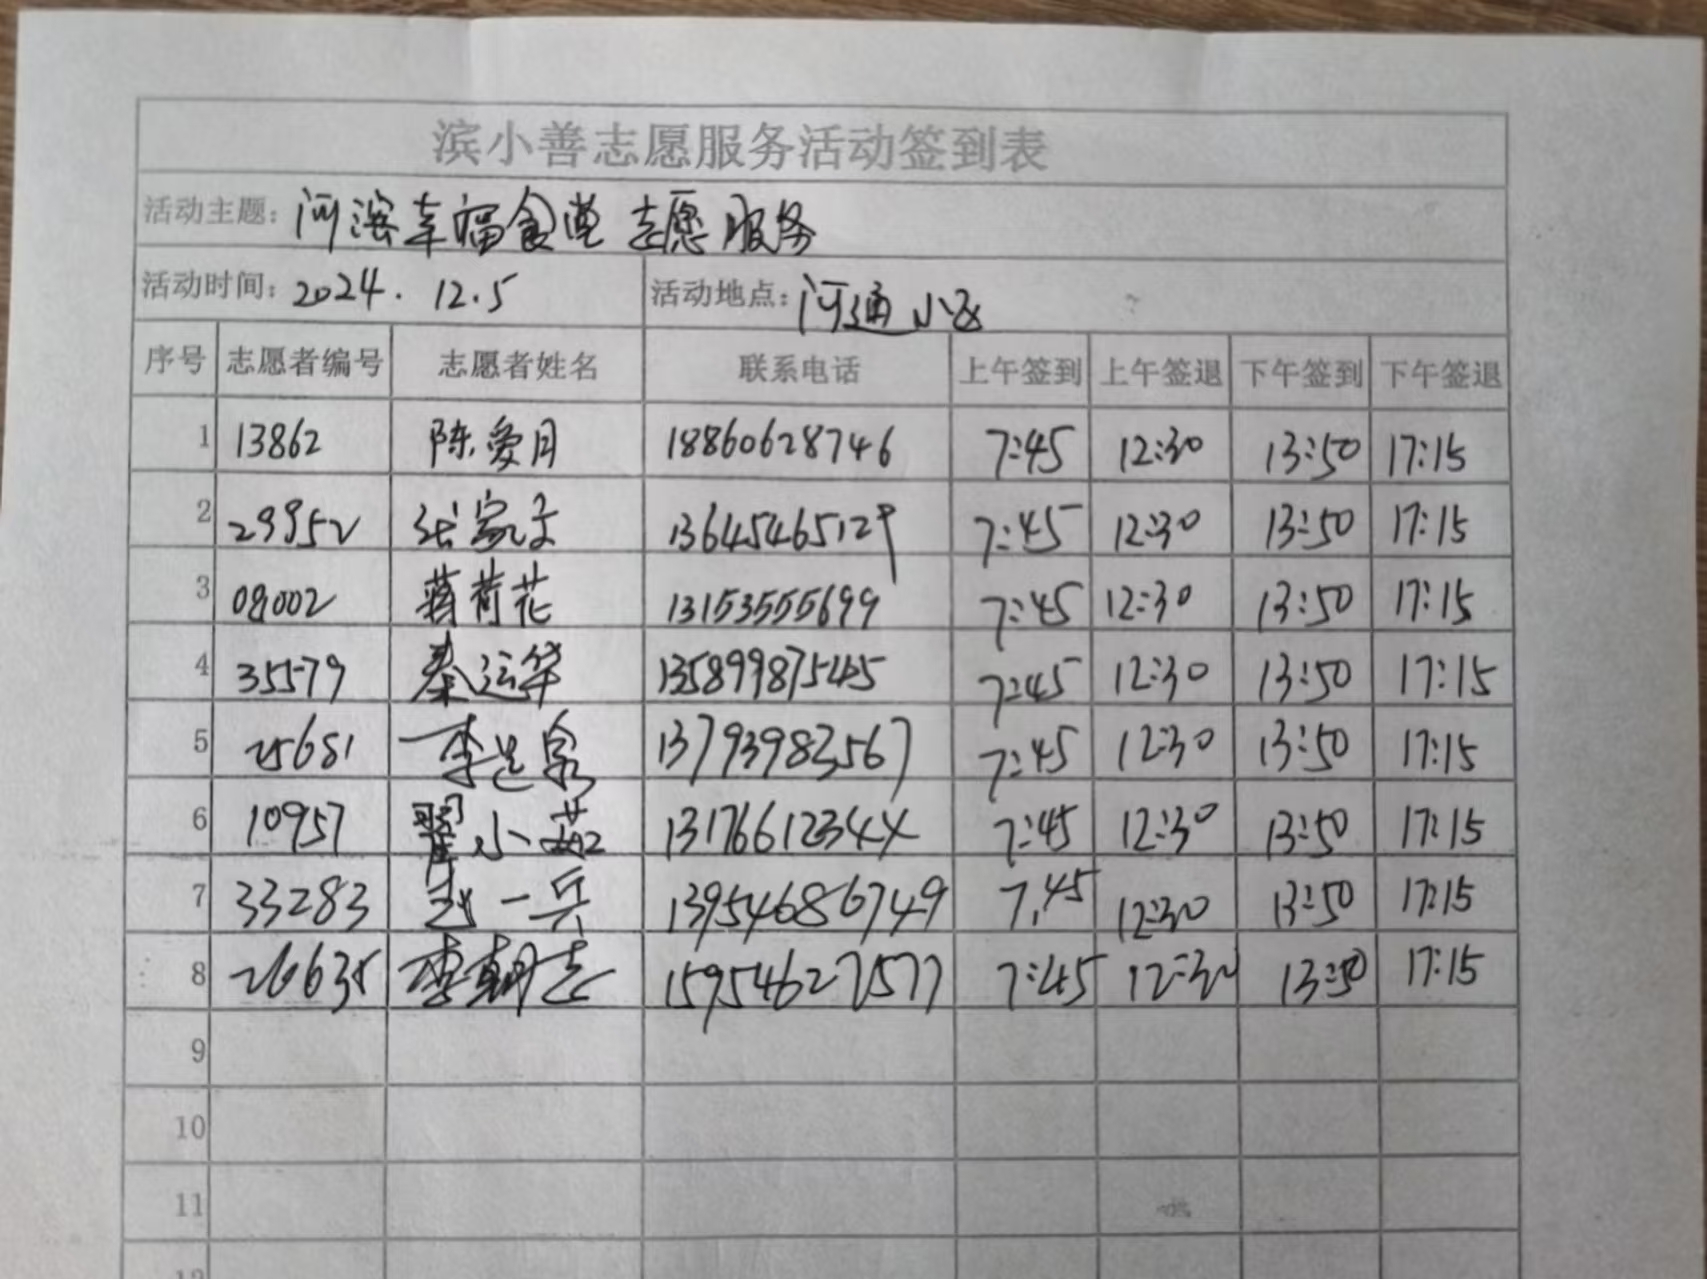 滨小善志愿服务活动签到表
活动主题: 河滨幸福食堂 志愿服务
活动时间: 2024. 12.5 活动地点: 河通小区
序号 志愿者编号 志愿者姓名 联系电话 上午签到 上午签退 下午签到 下午签退
1 13862 陈爱月 18860628746 7:45 12:30 13:50 17:15
2 29952 张家文 13645465129 7:45 12:30 13:50 17:15
3 08002 蒋荷花 13153555699 7:45 12:30 13:50 17:15
4 35579 秦运华 13589987545 7:45 12:30 13:50 17:15
5 25681 李 泉 13793983567 7:45 12:30 13:50 17:15
6 10957 翟小茹 13176612344 7:45 12:30 13:50 17:15
7 33283 赵一兵 13954686749 7.45 12:30 13:50 17:15
8 26635 李朝志 15954627577 7:45 12:30 13:50 17:15
9
10
11